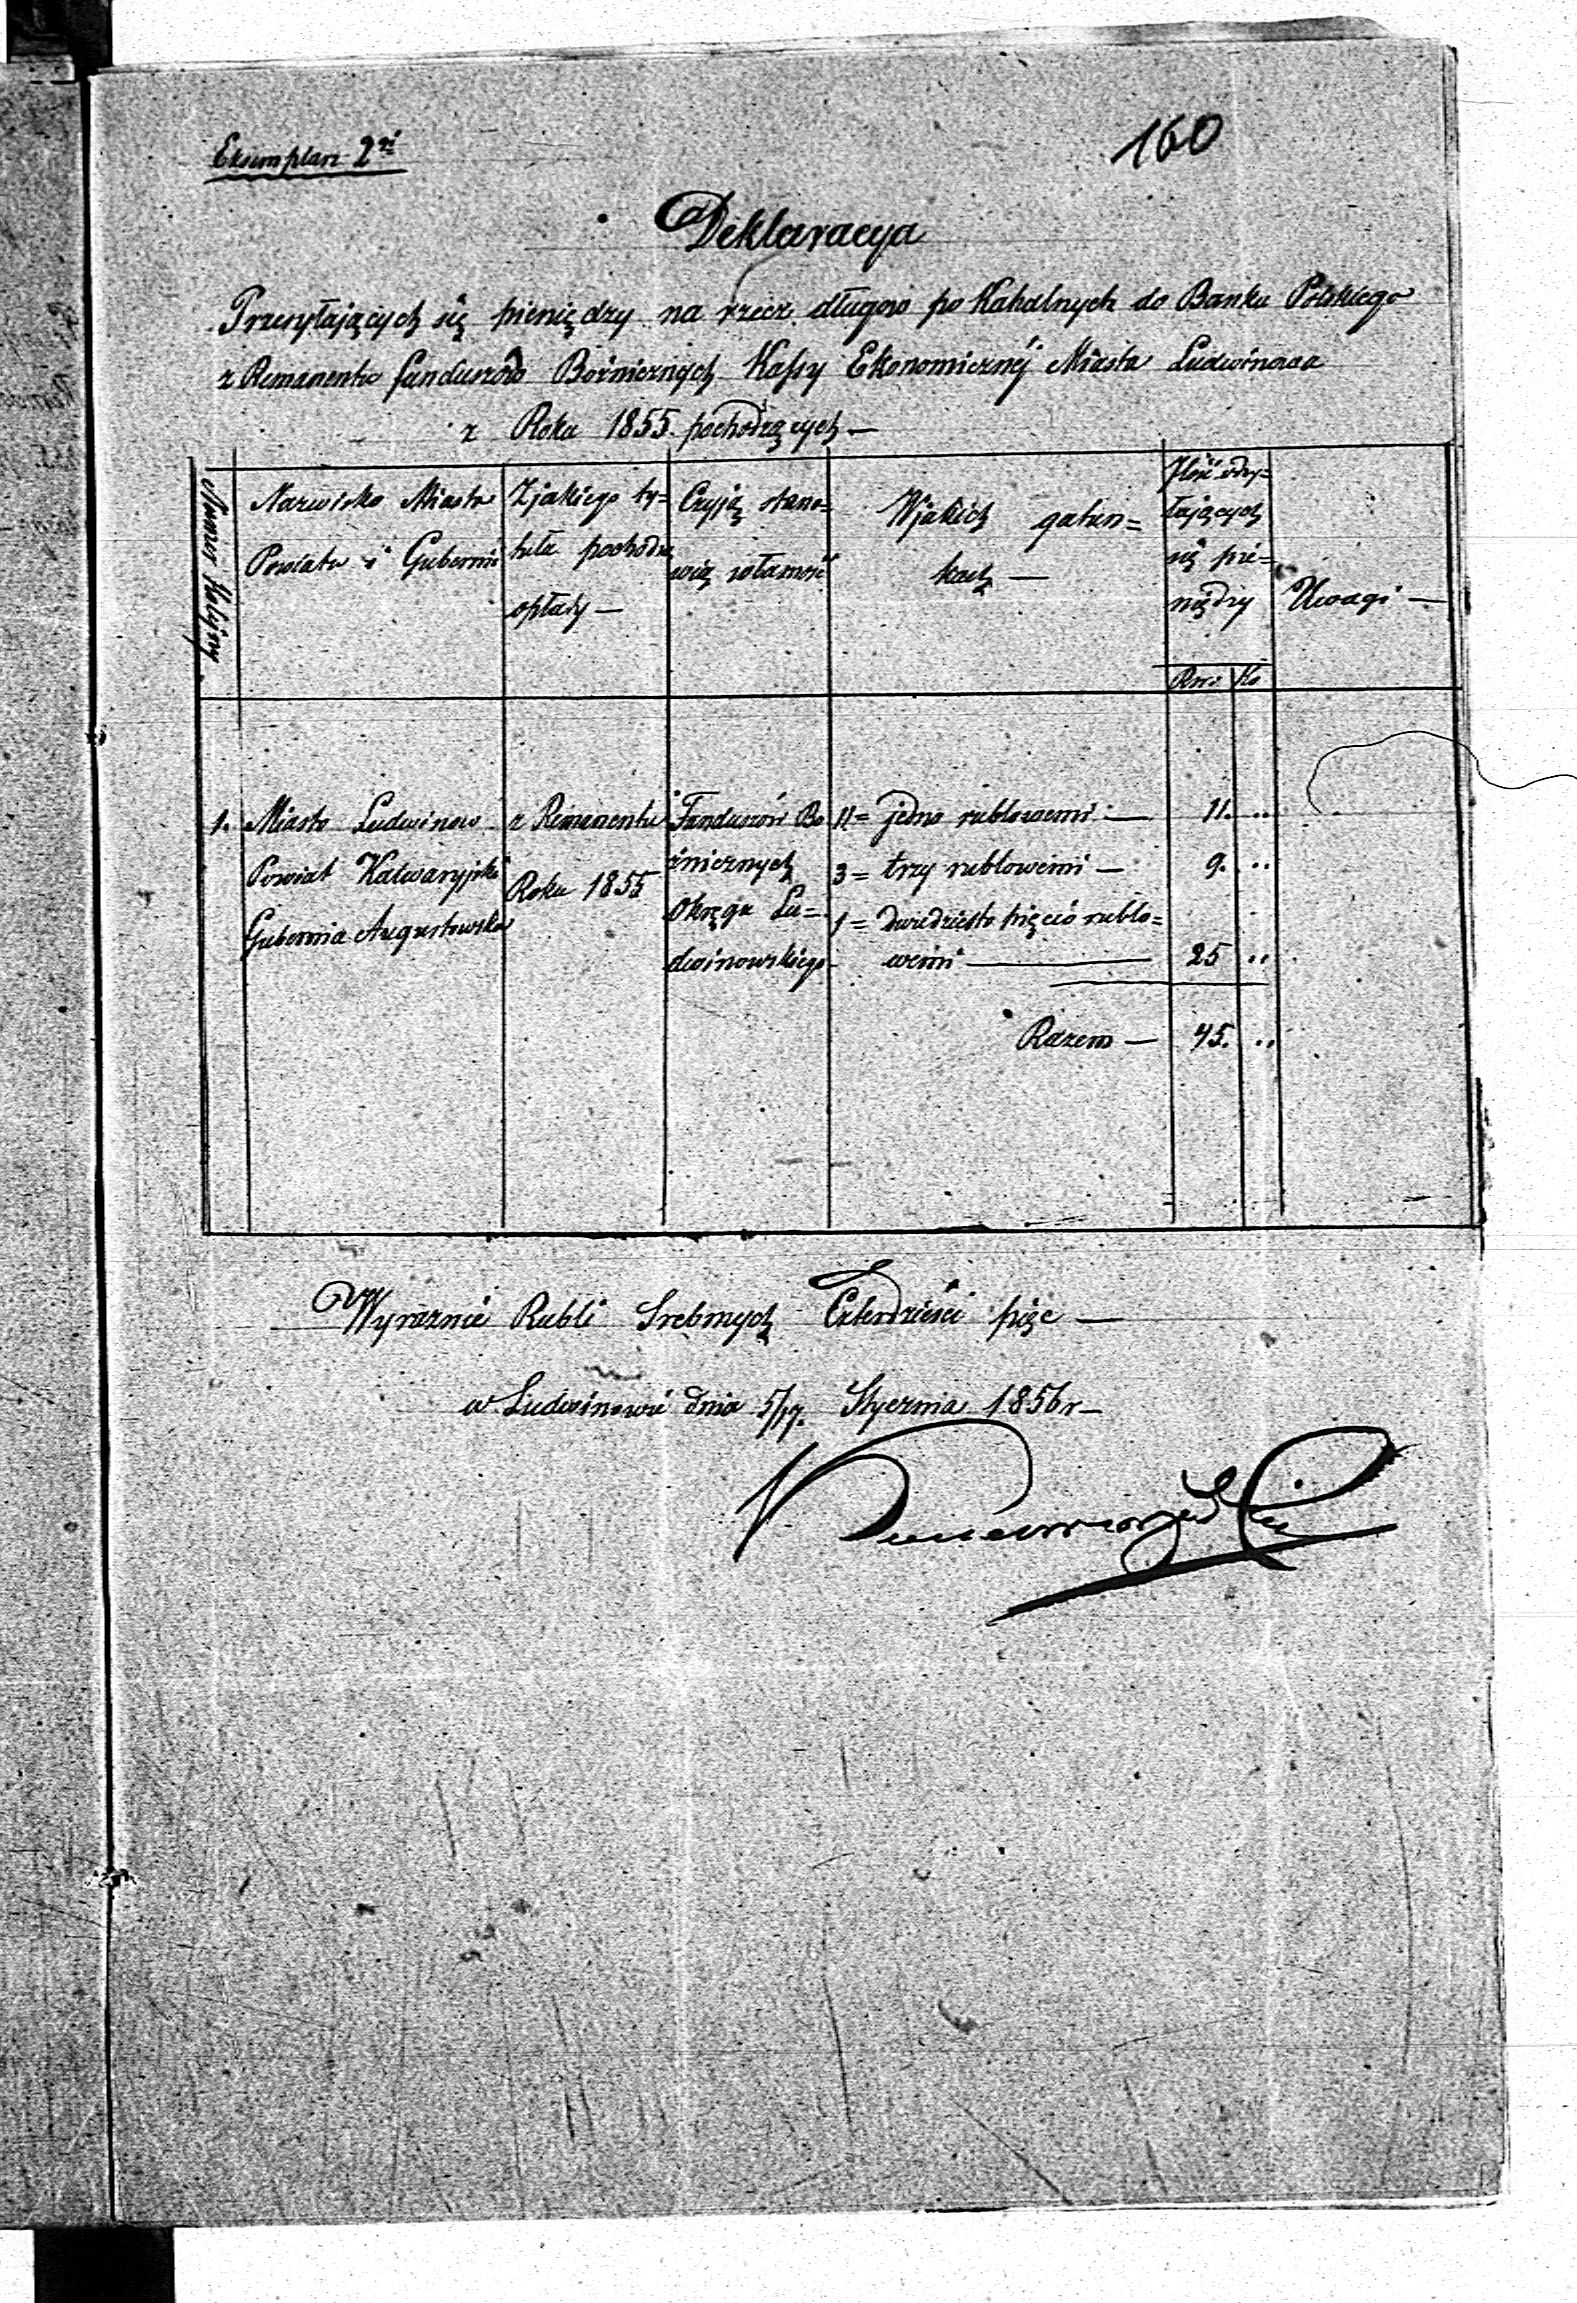 Exemplarz 2gi
160
Deklaracya
Przesyłających się pieniędzy na rzecz długów po Kahalnych do Banku Polskiego
z Remanentu funduszów Bożnicznych Kassy Ekonomicznéj Miasta Ludwinowa
z Roku 1855 pochodzących —
Numer Kolejny
Nazwisko Miasta
Powiatu i Gubernii
Z jakiego ty=
tułu pochodzą
opłaty —
Czyją stano=
wią własność
W jakich gatun=
kach —
Ilość
łających
się pie=
niędzy
Rsr. Ko
Uwagi —
1. Miasto Ludwinow
Powiat Kalwaryjski
Gubernia Augustowska
z Remanentu
Roku 1855
Funduszów Bo
żnicznych
Okręgu Lu=
dwinowskiego
11= jedno rublowemi — 11. ..
3= trzy rublowemi — 9. ..
1= dwudziesto pięcio rublo=
wemi — 25 ..
Razem — 45. ..
Wyraznie Rubli Srebrnych Czterdzieści pięć —
w Ludwinowie dnia 5/17. Stycznia 1856 r —